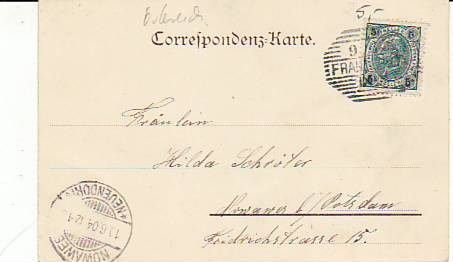 Österreich
5,-
Correspondenz-Karte.
5 5
9
FRAN
5 5
Fräulein
Hilda Schröter
Nowawes b/Potsdam
Friedrichstrasse 15.
NOWAWES
*NEUENDORF*
13.6.04.12-1